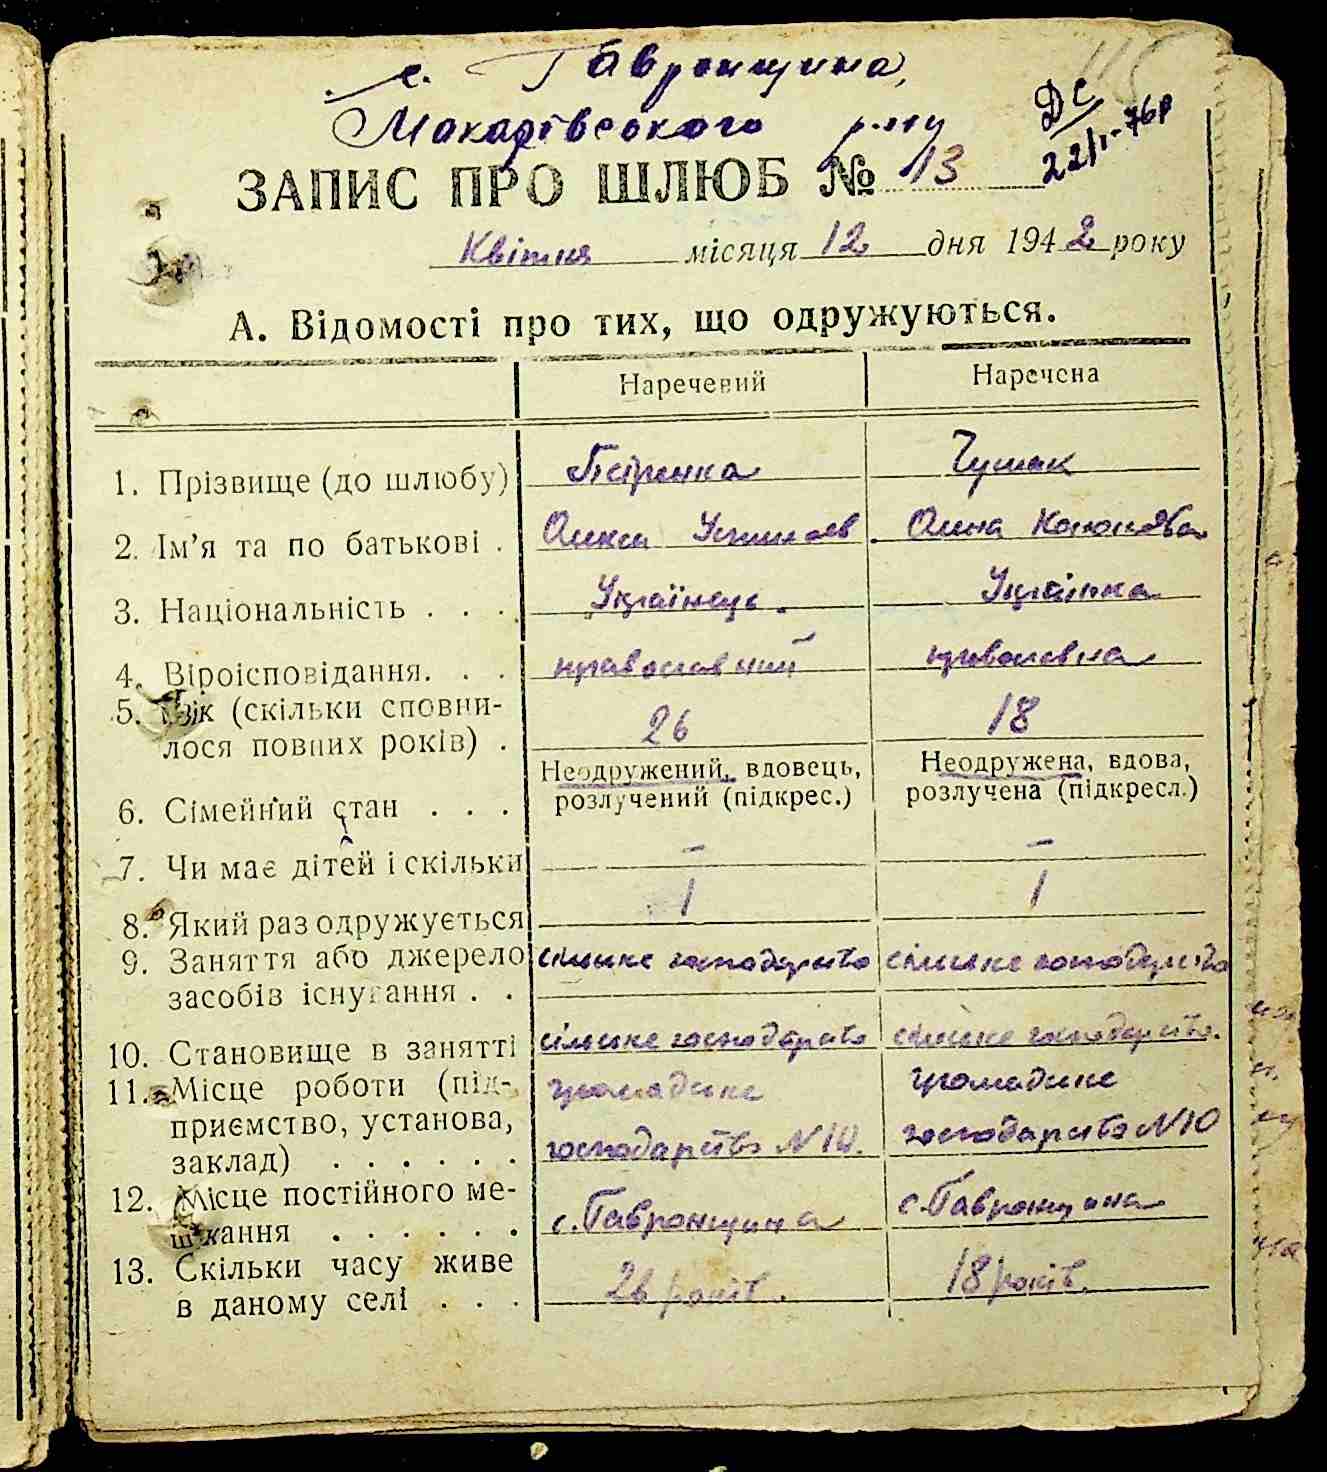 с. Гавронщина,
Макарівського р-ну
Дс
22/I-76р
ЗАПИС ПРО ШЛЮБ № 13
Квітня місяця 12 дня 1942 року
А. Відомості про тих, що одружуються.
Наречений Наречена
1. Прізвище (до шлюбу) Чумак
2. Ім'я та по батькові . Олекса Ганна
3. Національність . . . Українець. Українка
4. Віроісповідання. . . православний православна
5. Вік (скільки сповни-
лося повних років) . 26 18
6. Сімейний стан . . . Неодружений, вдовець, розлучений (підкрес.) Неодружена, вдова, розлучена (підкресл.)
7. Чи має дітей і скільки – –
8. Який раз одружується 1 1
9. Заняття або джерело сільське господарство сільське господарство
засобів існування . .
10. Становище в занятті сільське господарство сільське господарство.
11. Місце роботи (під- громадське громадське
приємство, установа, господарство N 10. господарство N 10
заклад) . . . . . .
12. Місце постійного ме-
шкання . . . . . . с. Гавронщина с. Гавронщина
13. Скільки часу живе
в даному селі . . . 26 років. 18 років.